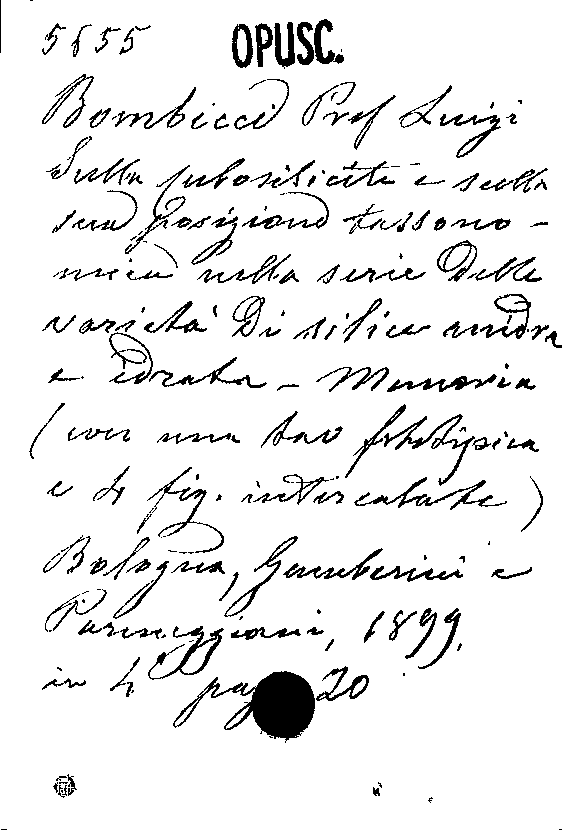 5655 OPUSC.
Bombicci Prof Luigi
Sulla cubosilicite e sulla
sua posizione tassono-
mica nella serie delle
varietà di silice anidra
e idrata - Memoria
(con una tav fototipica
e 4 fig. intercalate)
Bologna, Gamberini e
Parmeggiani, 1899.
in 4° pag 20